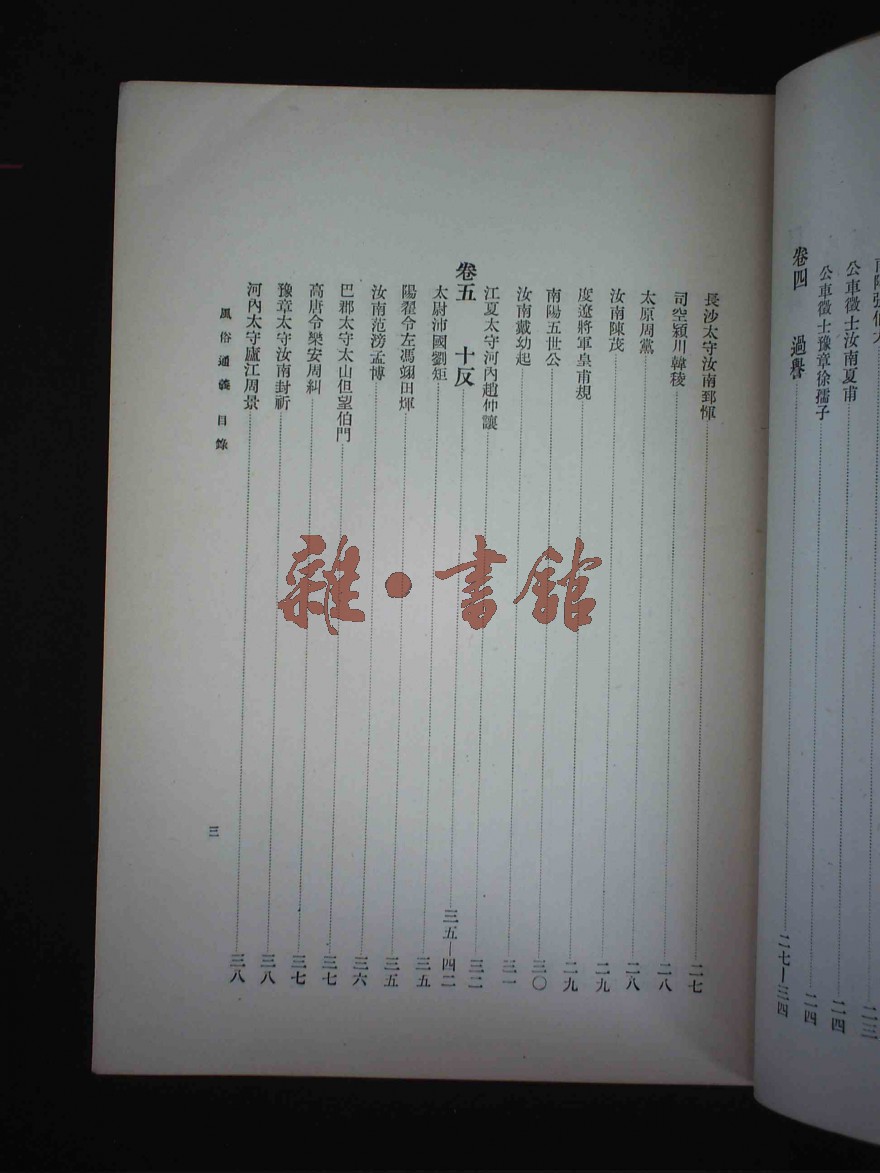 公車徵士汝南夏甫……二四
公車徵士豫章徐孺子……二四
卷四 過譽……二七—三四
長沙太守汝南郅惲……二七
司空潁川韓稜……二八
太原周黨……二八
汝南陳茂……二九
度遼將軍皇甫規……二九
南陽五世公……三〇
汝南戴幼起……三一
江夏太守河內趙仲讓……三二
卷五 十反……三五—四二
太尉沛國劉矩……三五
陽翟令左馮翊田煇……三五
汝南范滂孟博……三六
巴郡太守太山但望伯門……三七
高唐令樂安周糾……三七
豫章太守汝南封祈……三八
河內太守廬江周景……三八
風俗通義 目錄
三
雜·書館